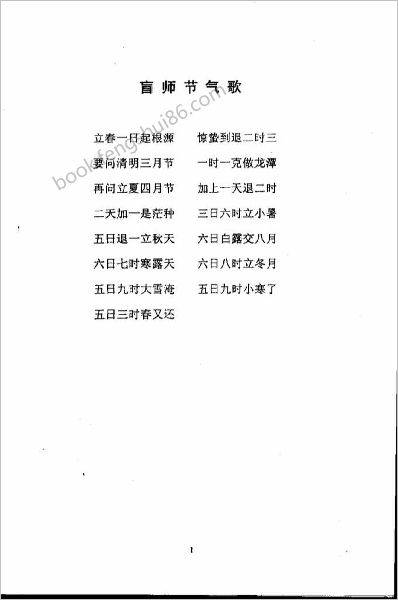 盲师节气歌
立春一日起根源 惊蛰到退二时三
要问清明三月节 一时一克做龙潭
再问立夏四月节 加上一天退二时
二天加一是茫种 三日六时立小暑
五日退一立秋天 六日白露交八月
六日七时寒露天 六日八时立冬月
五日九时大雪淹 五日九时小寒了
五日三时春又还
1
book.fengshui86.com